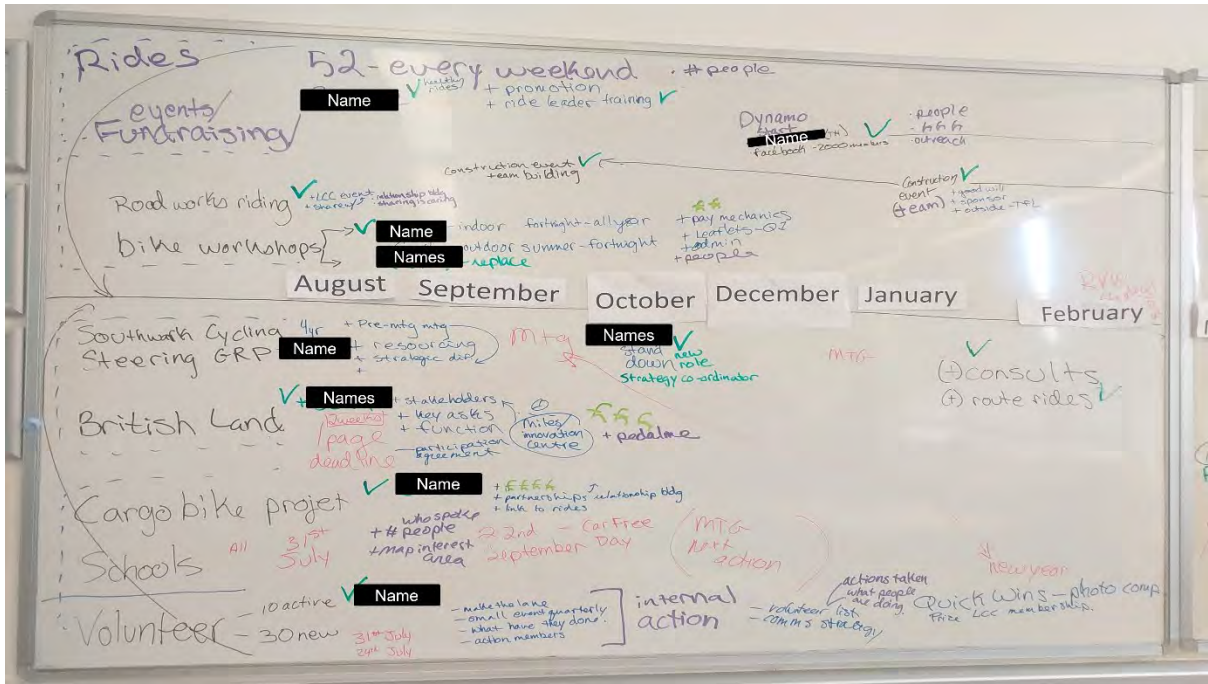 Rides
52 - every weekend · # people
Name
healthy rides
+ promotion
+ ride leader training
events/
Fundraising/
Dynamo
Name
facebook - 2000 members
· people
· £££
· outreach
construction event
+ team building
Road works riding
+ LCC event
relationship bldg
sharing is caring
Construction
event
(team)
+ good will
+ sponsor
+ outside - TFL
bike workshops
Name
indoor fortnight - all year
Names
outdoor summer - fortnight
- replace
££
+ pay mechanics
+ Leaflets - QI
+ admin
+ people
August
September
October
December
January
February
Southwark Cycling
Steering GRP
4yr
Name
+ Pre-mtg mtg
+ resourcing
+ strategic dir
+
Mtg
Names
stand
down
new
role
Strategy co-ordinator
MTG
(+) consults
(+) route rides
British Land
Names
+ stakeholders
+ key asks
+ function
- participation
agreement
2 weekst
1 page
deadline
miles
innovation
centre
£££
+ pedalme
Cargo bike projet
Name
+ ££££
+ partnerships relationship bldg
+ link to rides
Schools
All
31st
July
who spoke
+ # people
+ map interest
area
22nd - Car Free
September Day
MTG
next
action
new year
Volunteer
- 10 active
Name
- 30 new
31st July
24th July
- make the lane
- small event quarterly
- what have they done.
- action members
internal
action
- volunteer list
- comms strategy
actions taken
what people
are doing
Quick Wins - photo comp.
Prize LCC membership.